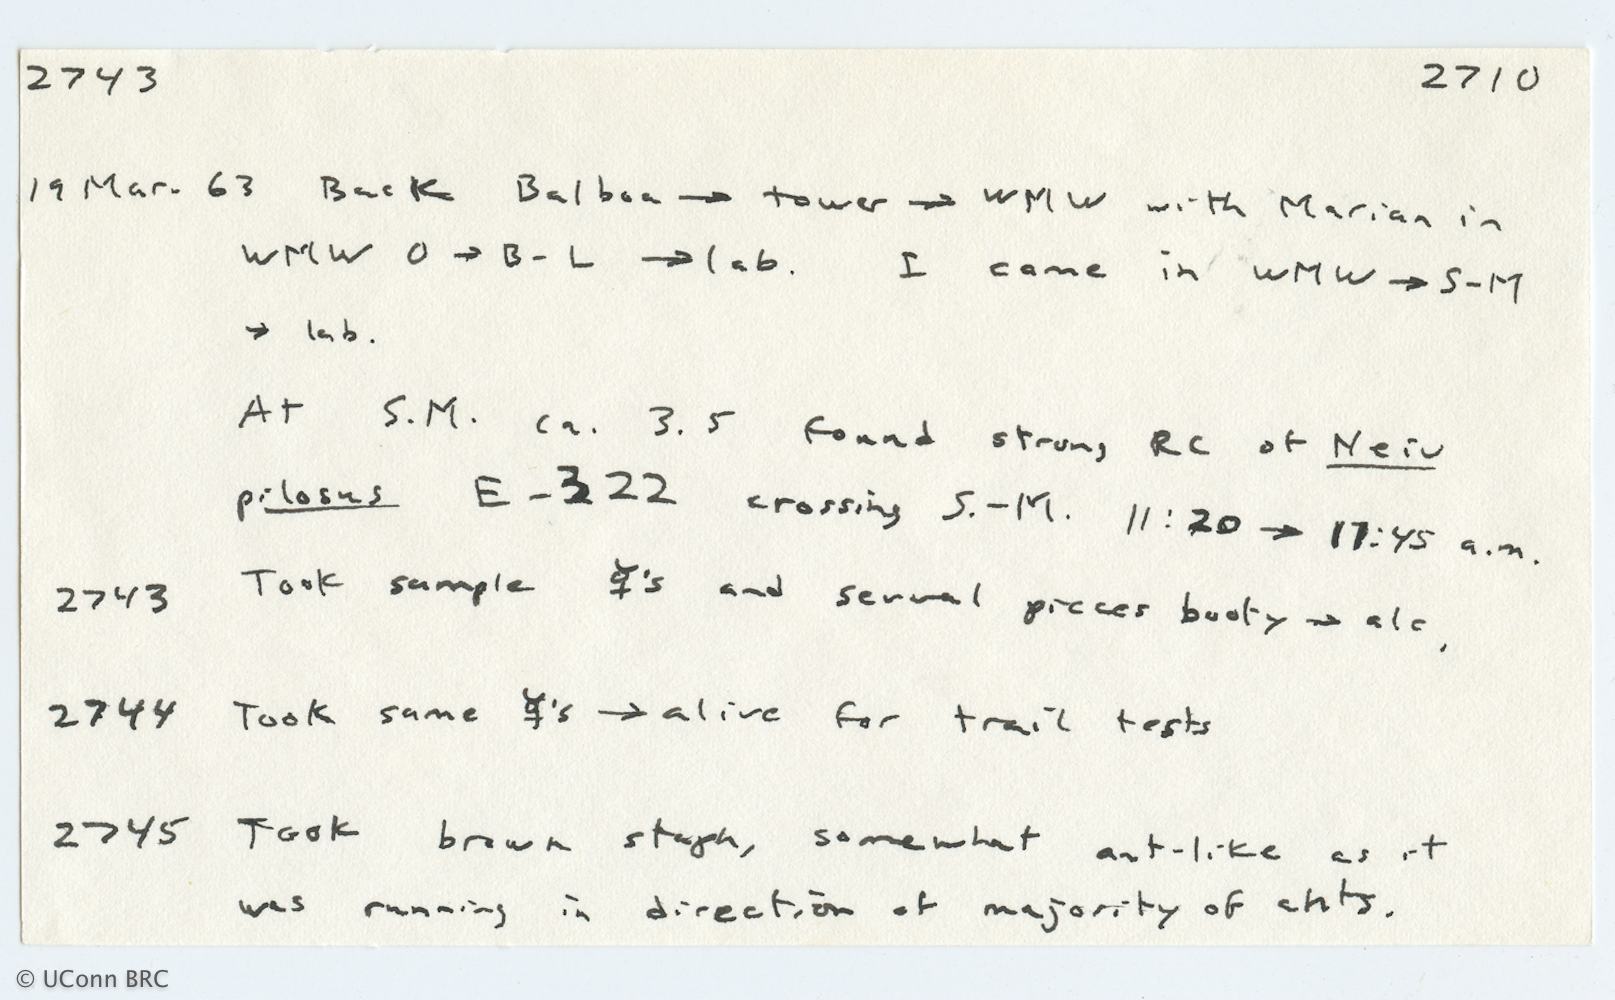 2743 2710
19 Mar. 63 Back Balboa → tower → WMW with Marian in
WMW 0 → B-L → lab. I came in WMW → S-M
→ lab.
At S.M. ca. 3.5 found strong RC of Neiv
pilosus E-322 crossing S.-M. 11:20 → 11:45 a.m.
2743 Took sample ☿'s and several pieces booty → alc.
2744 Took some ☿'s → alive for trail tests
2745 Took brown staph, somewhat ant-like as it
was running in direction of majority of ants.
© UConn BRC